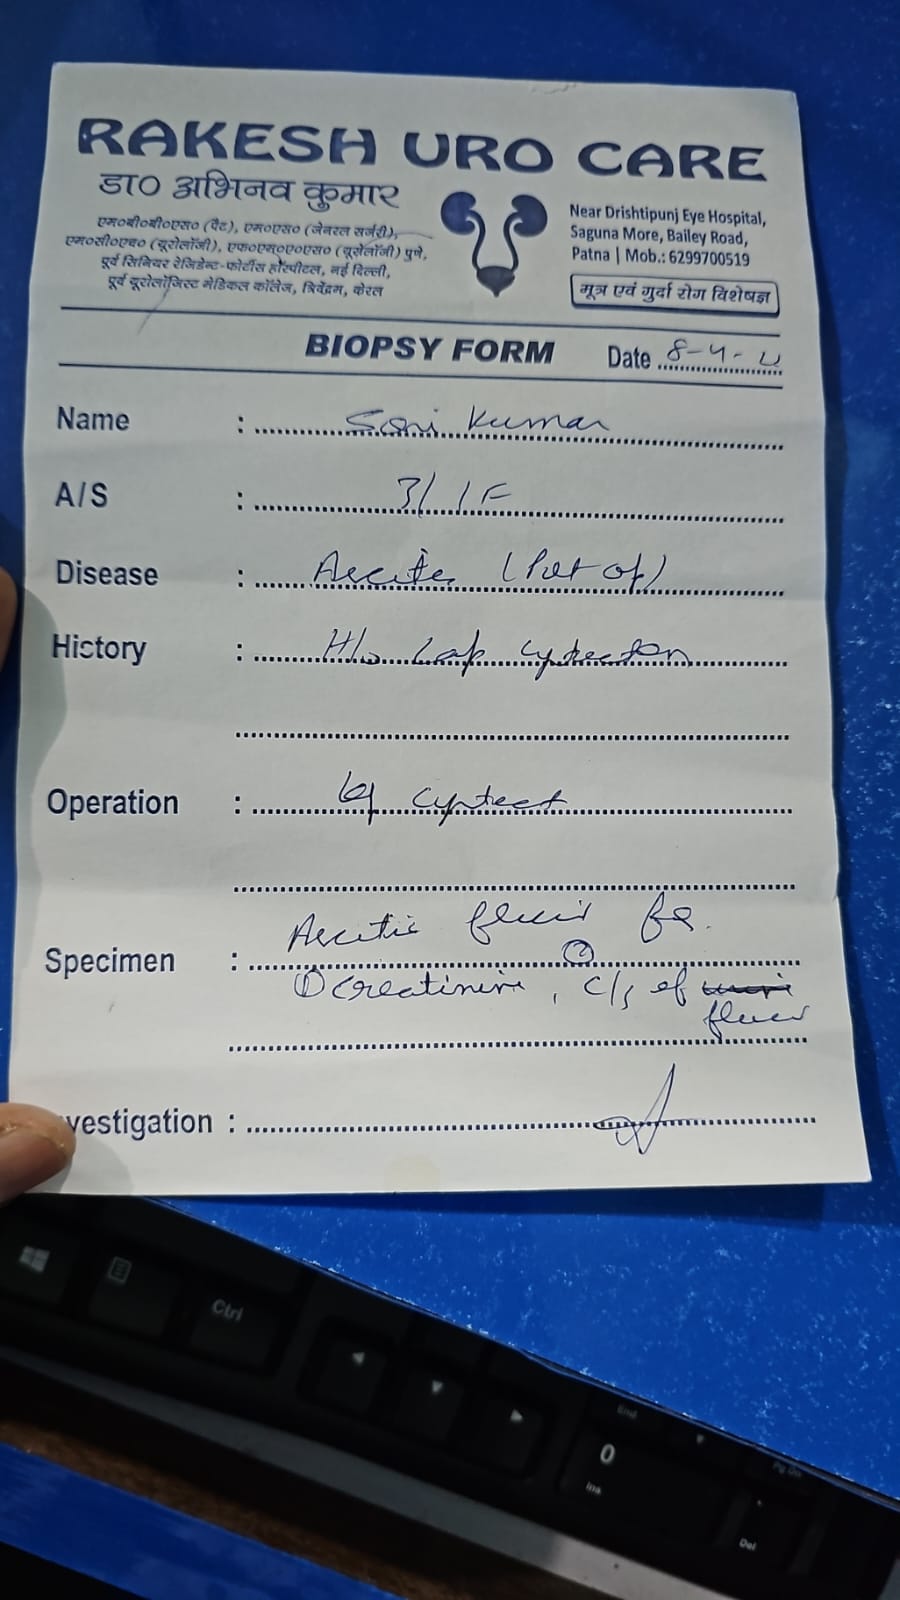 RAKESH URO CARE
डा० अभिनव कुमार
एम०बी०बी०एस० (पैट), एम०एस० (जेनरल सर्जरी),
एम०सी०एच० (यूरोलॉजी), एफ०एम०ए०एस० (यूरोलॉजी) पुणे,
पूर्व सिनियर रेजिडेन्ट-फोर्टीस हॉस्पीटल, नई दिल्ली,
पूर्व यूरोलॉजिस्ट मेडिकल कॉलेज, त्रिवेंद्रम, केरल
Near Drishtipunj Eye Hospital,
Saguna More, Bailey Road,
Patna | Mob.: 6299700519
मूत्र एवं गुर्दा रोग विशेषज्ञ
BIOPSY FORM
Date 8-4-
Name : Soni Kumar
A/S : 31 F
Disease : Ascites (Post op)
Hictory : H/o Lap
Operation :
Ascitic fluid for
Specimen :
① Creatinine, ② C/s of
fluid
vestigation :
Ctrl
End
0
Ins
Pg Dn
Del